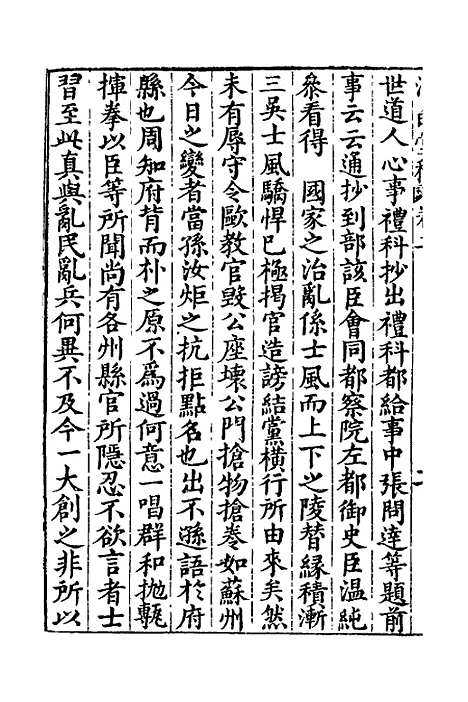 世道人心事禮科抄出禮科都給事中張問達等題前
事云云通抄到部該臣會同都察院左都御史臣温純
叅看得　國家之治亂係士風而上下之陵替緣積漸
三吳士風驕悍已極揭官造謗結黨橫行所由來矣然
未有辱守令歐教官毀公座壞公門搶物搶卷如蘇州
今日之變者當孫汝炬之抗拒點名也出不遜語於府
縣也周知府背而朴之原不爲過何意一唱群和拋甎
揮拳以臣等所聞尚有各州縣官所隱忍不欲言者士
習至此真與亂民亂兵何異不及今一大創之非所以